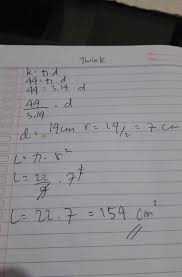 Twink
k = π. d
44 = π. d
44 = 3.14 . d
44/3.14 = d
d = 14 cm r = 14/2 = 7 cm
L = π. r²
L = 22/7 . 7²
L = 22 . 7 = 154 cm²